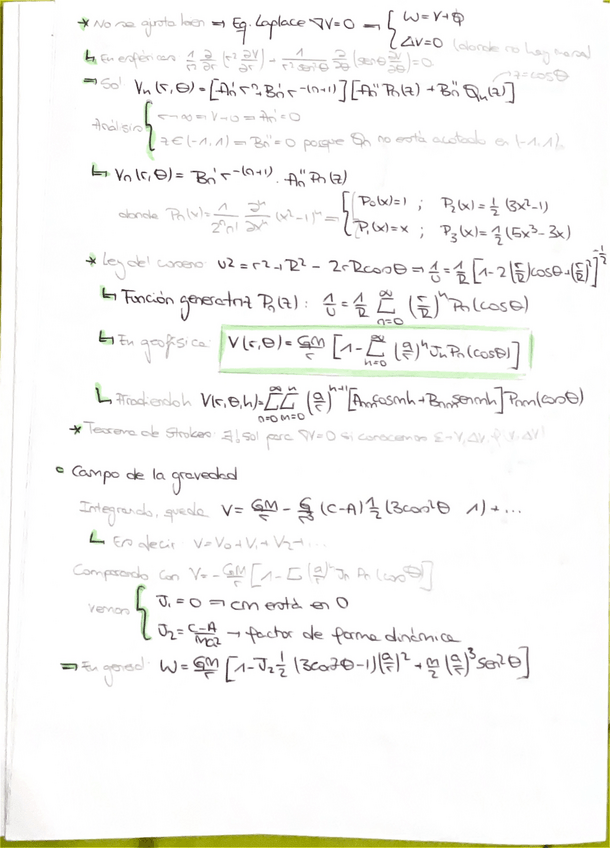 * No se gusta bien ⇒ Eq. Laplace ∇V=0 → { W=V+Φ
ΔV=0 (donde no hay masa)
↳ En esféricas: 1/r² ∂/∂r (r² ∂V/∂r) + 1/(r² senθ) ∂/∂θ (senθ ∂V/∂θ)=0
z=cosθ
⇒ Sol: Vn(r,θ) = [An' rⁿ + Bn' r^-(n+1)] [An'' Pn(z) + Bn'' Qn(z)]
Análisis { r→∞ ⇒ V→0 ⇒ An'=0
z∈(-1,1) ⇒ Bn''=0 porque Qn no está acotado en (-1,1).
↳ Vn(r,θ) = Bn' r^-(n+1) · An'' Pn(z)
donde Pn(x)= 1/(2ⁿn!) ∂ⁿ/∂xⁿ (x²-1)ⁿ = { P0(x)=1 ; P2(x)=1/2 (3x²-1)
P1(x)=x ; P3(x)=1/2 (5x³-3x)
* Ley del coseno: U²=r²+R²-2rRcosθ ⇒ 1/U = 1/R [1-2(r/R)cosθ+(r/R)²]^-1/2
↳ Función generatriz Pn(z): 1/U = 1/R Σ_{n=0}^∞ (r/R)ⁿ Pn(cosθ)
↳ En geofísica: V(r,θ) = GM/r [1-Σ_{n=0}^∞ (a/r)ⁿ Jn Pn(cosθ)]
↳ Añadiendo λ V(r,θ,λ)=Σ_{n=0}^∞ Σ_{m=0}^n (a/r)^{n+1} [Anm cosmλ + Bnm senmλ] Pnm(cosθ)
* Teorema de Stokes: ∃! sol para ∇V=0 si conocemos
• Campo de la gravedad
Integrando, queda V = GM/r - G/r³ (C-A) 1/2 (3cos²θ - 1) + ...
↳ Es decir: V=V0+V1+V2+...
Comparando con V=-GM/r [1-Σ(a/r)ⁿ Jn Pn(cosθ)]
vemos { J1=0 ⇒ CM está en 0
J2=(C-A)/(Ma²) → factor de forma dinámica
⇒ En general: W= GM/r [1-J2 1/2 (3cos²θ-1)(a/r)² + m/2 (a/r)³ sen²θ]